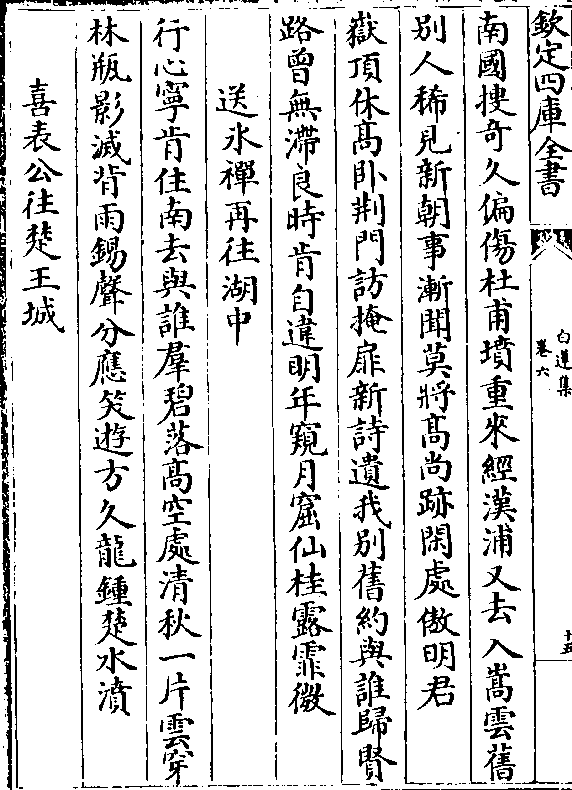 欽定四庫全書
白蓮集
卷六
十五
南國搜奇久偏傷杜甫墳重來經漢浦又去入嵩雲舊
别人稀見新朝事漸聞莫將髙尚跡閑處傲明君
嶽頂休髙卧荆門訪掩扉新詩遺我别舊約與誰歸賢
路曾無滯良時肯自違明年窺月窟仙桂露霏微
送氷禪再往湖中
行心寧肯住南去與誰羣碧落髙空處清秋一片雲穿
林瓶影滅背雨錫聲分應笑遊方久龍鍾楚水濆
喜表公往楚王城